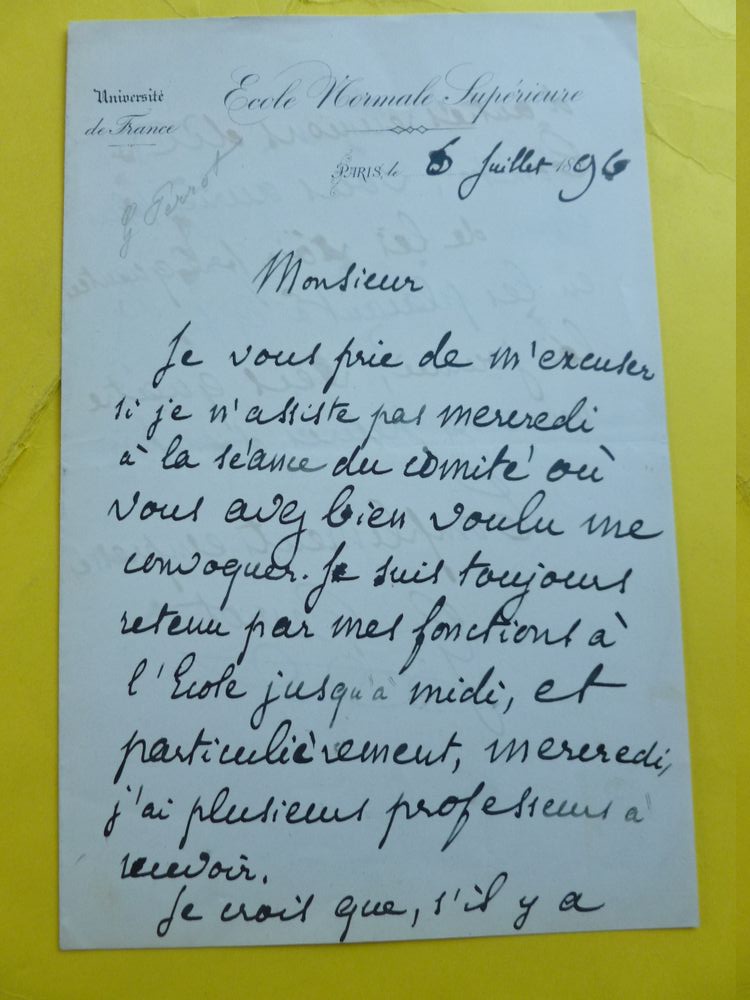 Université
de France
Ecole Normale Supérieure
PARIS, le 6 Juillet 1896
G Perrot
Monsieur
Je vous prie de m'excuser
si je n'assiste pas mercredi
à la séance du comité où
vous avez bien voulu me
convoquer. Je suis toujours
retenu par mes fonctions à
l'Ecole jusqu'à midi, et
particulièrement, mercredi,
j'ai plusieurs professeurs à
recevoir.
Je crois que, s'il y a